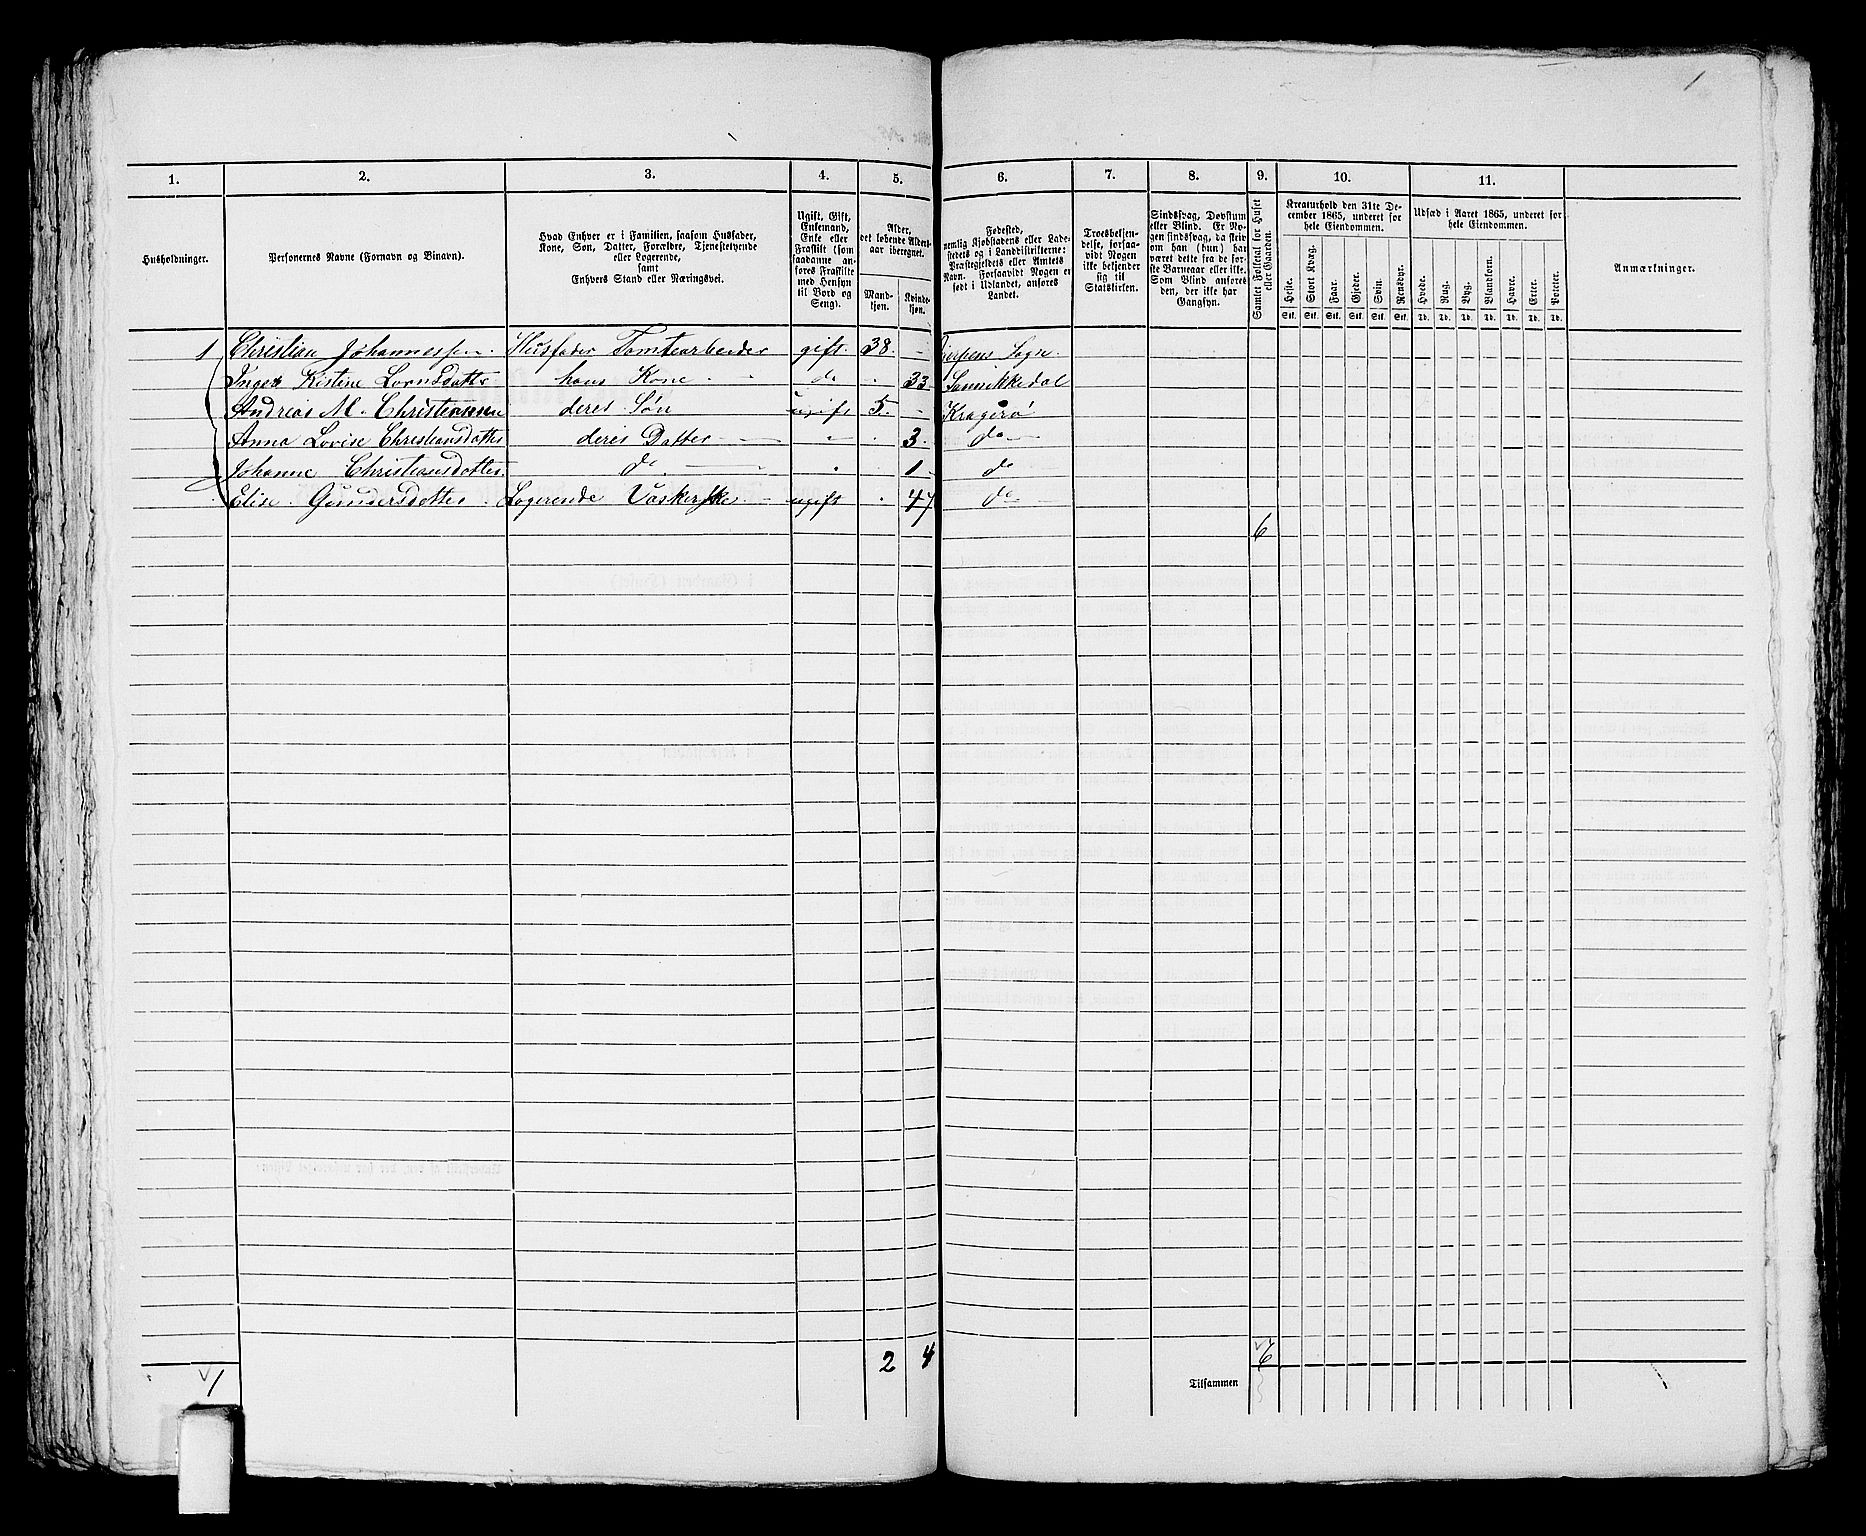 1
1. 2. 3. 4. 5. 6. 7. 8. 9. 10. 11.
Husholdninger.
Personernes Navne (Fornavn og Binavn).
Hvad Enhver er i Familien, saasom Husfader,
Kone, Søn, Datter, Forældre, Tjenestetyende
eller Logerende,
samt
Enhvers Stand eller Næringsvei.
Ugift, Gift,
Enkemand,
Enke eller
Fraskilt (som
saadanne an-
føres Fraskilte
med Hensyn
til Bord og
Seng).
Alder,
det løbende Alders-
aar iberegnet.
Mand-
kjøn.
Kvinde-
kjøn.
Fødested,
nemlig Kjøbstadens eller Lade-
stedets og i Landdistrikterne:
Præstegjeldets eller Amtets
Navn. Forsaavidt Nogen er
født i Udlandet, anføres
Landet.
Troesbekjen-
delse, forsaa-
vidt Nogen
ikke bekjender
sig til
Statskirken.
Sindssvag, Døvstum
eller Blind. Er No-
gen sindssvag, da skriv
om han (hun) har
været dette fra de før-
ste Barneaar eller ikke.
Som Blind anføres
den, der ikke har
Gangsyn.
Samlet Folketal for Huset
eller Gaarden.
Kreaturhold den 31te De-
cember 1865, underet for
hele Eiendommen.
Heste. Stort Kvæg. Faar. Gjeder. Svin. Rensdyr.
Stk. Stk. Stk. Stk. Stk. Stk.
Udsæd i Aaret 1865, underet for
hele Eiendommen.
Hvede. Rug. Byg. Blandkorn. Havre. Erter. Poteter.
Td. Td. Td. Td. Td. Td. Td.
Anmærkninger.
1 Christian Johannessen. Husfader Tomtearbeider gift. 38. - Gjerpens Sogn.
Inger Kistine hans Kone do 33 Sannikkedal
Andreas M. Christiansen deres Søn ugift 5. - Kragerø
Anna Lovise Christiansdatter deres Datter " 3. do
Johanne Christiansdatter. do " 1 do
Elise Gundersdatter. Logerende Vaskerske. ugift 47 do
6
1 2 4 Tilsammen 6